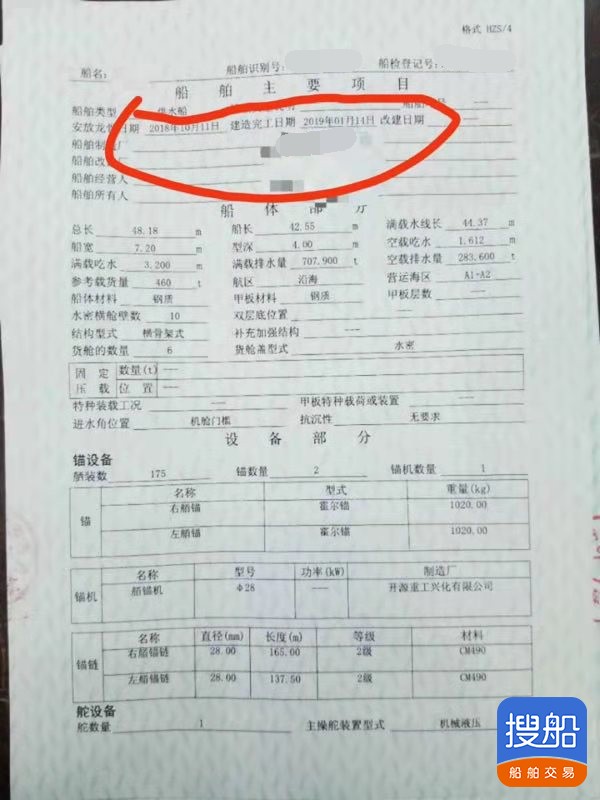 格式 HZS/4
船名: 船舶识别号: 船检登记号:
船 舶 主 要 项 目
船舶类型 供水船 ---
安放龙骨日期 2018年10月11日 建造完工日期 2019年01月14日 改建日期
船舶制造厂
船舶改
船舶经营人
船舶所有人
船 体 部 分
总长 48.18 m 船长 42.55 m 满载水线长 44.37 m
船宽 7.20 m 型深 4.00 m 空载吃水 1.612 m
满载吃水 3.200 m 满载排水量 707.900 t 空载排水量 283.600 t
参考载货量 460 t 航区 沿海 营运海区 A1-A2
船体材料 钢质 甲板材料 钢质 甲板层数 ---
水密横舱壁数 10 双层底位置 ---
结构型式 横骨架式 补充加强结构 ---
货舱的数量 6 货舱盖型式 水密
固 定 数量(t) ---
压 载 位 置 ---
特种装载工况 --- 甲板特种载荷或装置 ---
进水角位置 机舱门槛 抗沉性 无要求
设 备 部 分
锚设备
舾装数 175 锚数量 2 锚机数量 1
锚 名称 型式 重量(kg)
右艏锚 霍尔锚 1020.00
左艏锚 霍尔锚 1020.00
锚机 名称 型号 功率(kW) 制造厂
艏锚机 Φ28 --- 开源重工兴化有限公司
锚链 名称 直径(mm) 长度(m) 等级 材料
右艏锚链 28.00 165.00 2级 CM490
左艏锚链 28.00 137.50 2级 CM490
舵设备
舵数量 1 主操舵装置型式 机械液压
搜船
船舶交易